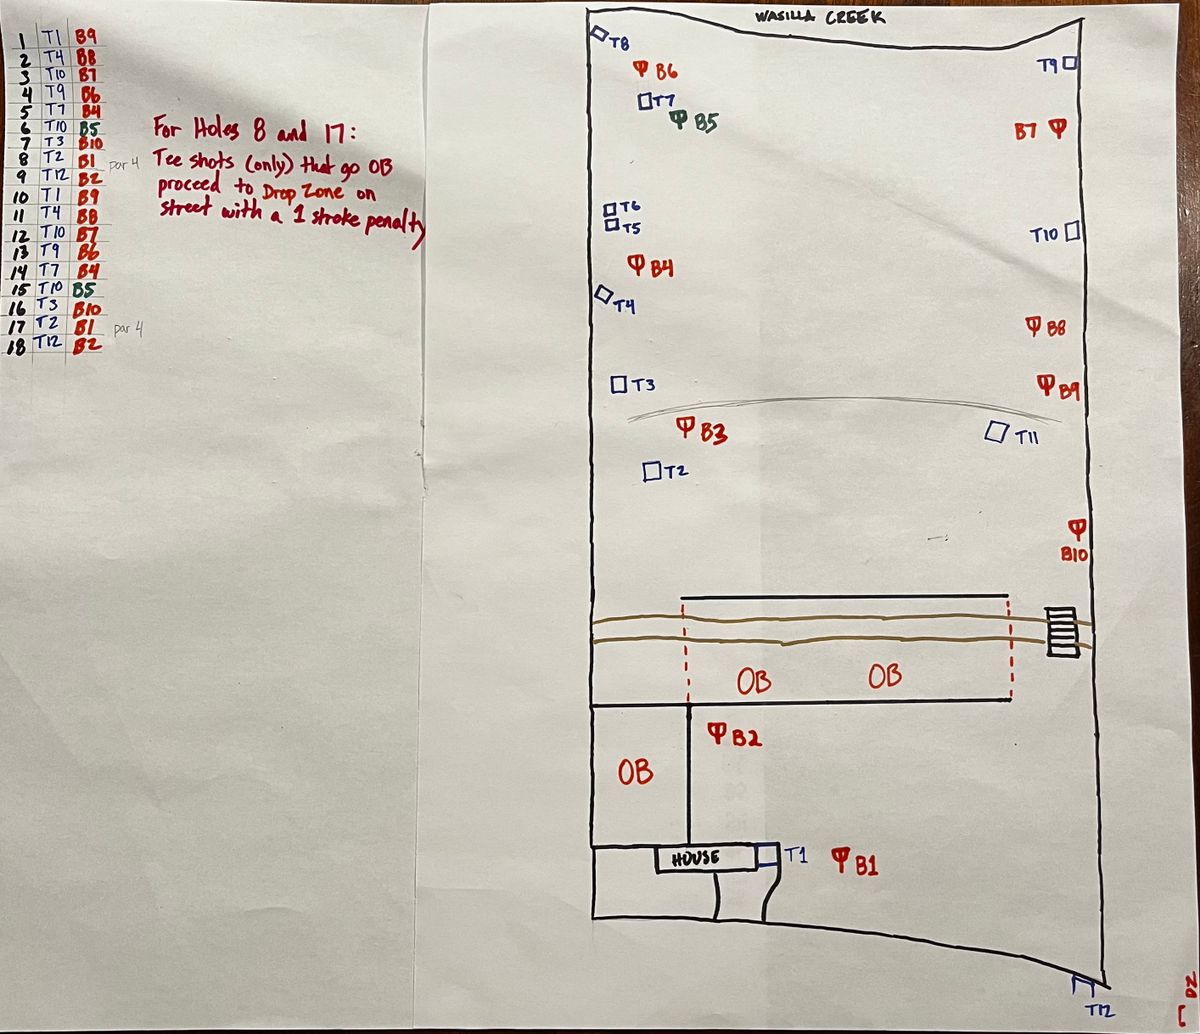 1 T1 B9
2 T4 B8
3 T10 B7
4 T9 B6
5 T7 B4
6 T10 B5
7 T3 B10
8 T2 B1 par 4
9 T12 B2
10 T1 B9
11 T4 B8
12 T10 B7
13 T9 B6
14 T7 B4
15 T10 B5
16 T3 B10
17 T2 B1 par 4
18 T12 B2
For Holes 8 and 17:
Tee shots (only) that go OB
proceed to Drop Zone on
street with a 1 stroke penalty
WASILLA CREEK
T8
T9
B6
T7
B5
B7
T6
T5
T10
B4
T4
B8
T3
B9
B3
T11
T2
B10
OB OB
B2
OB
HOUSE
T1
B1
T12
DZ